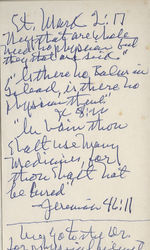 St. Mark 2:17
"They that are whole
need no physician but
they that are sick."
"Is there no balm in
Gilead, is there no
physician there?"
8:22
"In vain thou
shalt use many
medicines, for
thou shalt not
be cured"
— Jeremiah 46:11